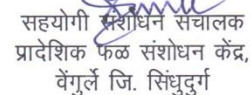 सहयोगी संशोधन संचालक
प्रादेशिक फळ संशोधन केंद्र,
वेंगुर्ले जि. सिंधुदुर्ग